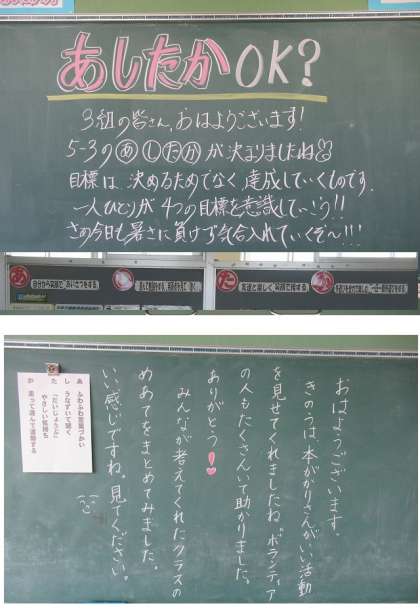 あしたかOK?
3組の皆さん、おはようございます!
5-3のあしたかが決まりましたね
目標は、決めるためでなく、達成していくものです。
一人ひとりが4つの目標を意識していこう!!
さあ今日も暑さに負けず気合入れていくぞ〜!!!
あ
自分から笑顔で、あいさつをする
し
た
友達と楽しく、笑顔で接する
か
おはようございます。
きのうは本がかりさんがいい活動
を見せてくれましたね ボランティア
の人もたくさんいて助かりました。
ありがとう!
みんなが考えてくれたクラスの
めあてをまとめてみました。
いい感じですね。見てください。
あ ふわふわ言葉づかい
し うなずいて聞く
た 「だいじょうぶ」
やさしい気持ち
か 楽って進んで清掃する